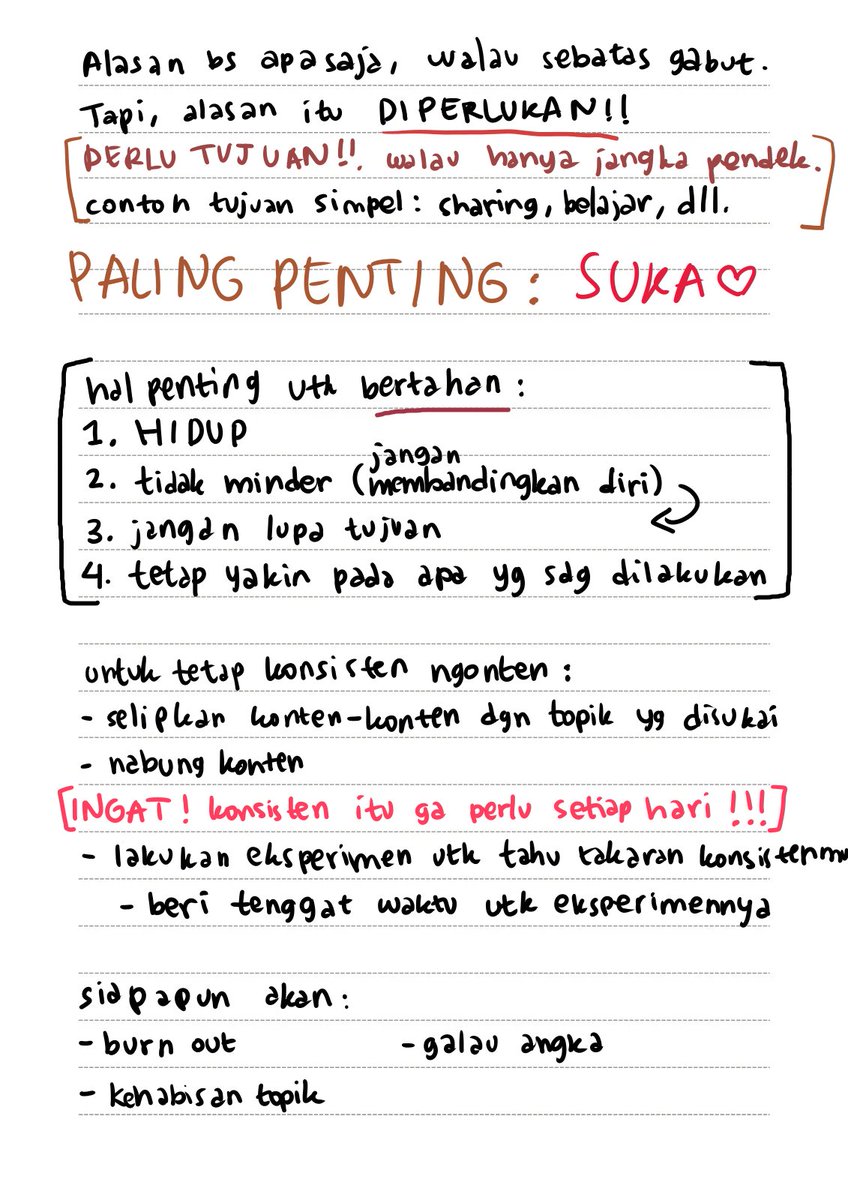 Alasan bs apa saja, walau sebatas gabut.
Tapi, alasan itu DIPERLUKAN!!
[PERLU TUJUAN!!. walau hanya jangka pendek.
contoh tujuan simpel: sharing, belajar, dll.]
PALING PENTING: SUKA♡
[hal penting utk bertahan:
1. HIDUP
2. tidak minder (jangan membandingkan diri)
3. jangan lupa tujuan
4. tetap yakin pada apa yg sdg dilakukan]
untuk tetap konsisten ngonten:
- selipkan konten-konten dgn topik yg disukai
- nabung konten
[INGAT! konsisten itu ga perlu setiap hari!!!]
- lakukan eksperimen utk tahu takaran konsistenmu
- beri tenggat waktu utk eksperimennya
siapapun akan:
- burn out - galau angka
- kehabisan topik